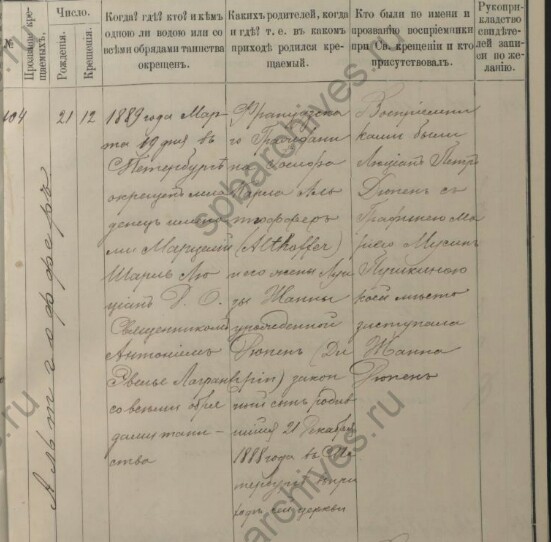 №
Прозваніе крещаемыхъ.
Число.
Рожденія.
Крещенія.
Когда? гдѣ? кто? и кѣмъ
одною ли водою или со
всѣми обрядами таинства
окрещенъ.
Какихъ родителей, когда
и гдѣ? т. е. въ какомъ
приходѣ родился крещаемый.
Кто были по имени и
прозванію воспріемники
при Св. крещеніи и кто
присутствовалъ.
Рукоприкладство
свидѣтелей записи
по желанію.
104
Альтгофферъ
21
12
1889 года Мар-
та 19 дня въ
С Петербургѣ
окрещенъ мла
денецъ имена
ми Марцелій
Шарль Лю
ціанъ Р. О.
Священникомъ
Антоніемъ
Лагранъ
со всѣми обря
дами таин-
ства
Французска
го Граждани
на Іосифа
Марія Аль
тгофферъ
(Althoffer)
и его жены Луи
зы Жанны
урожденной
Дюпенъ (Du
pin) закон
ный сынъ, родив
шійся 21 Декабря
1888 года въ С Пе
тербургѣ при
ходѣ сей церкви
Воспріемни
ками были
Люціанъ Петръ
Дюпенъ съ
Графинею Ма
ріею Мусинъ
Пушкиною
коей мѣсто
заступала
Жанна
Дюпенъ
spbarchives.ru